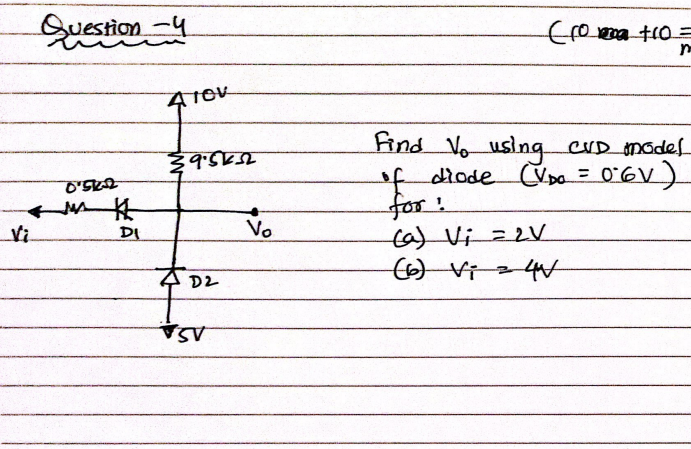 Question - 4
(10 +10 =
10V
9.5kΩ
0.5kΩ
Vi
D1
Vo
D2
5V
Find Vo using CVD model
of diode (VDo = 0.6V)
for :
(a) Vi = 2V
(b) Vi = 4V